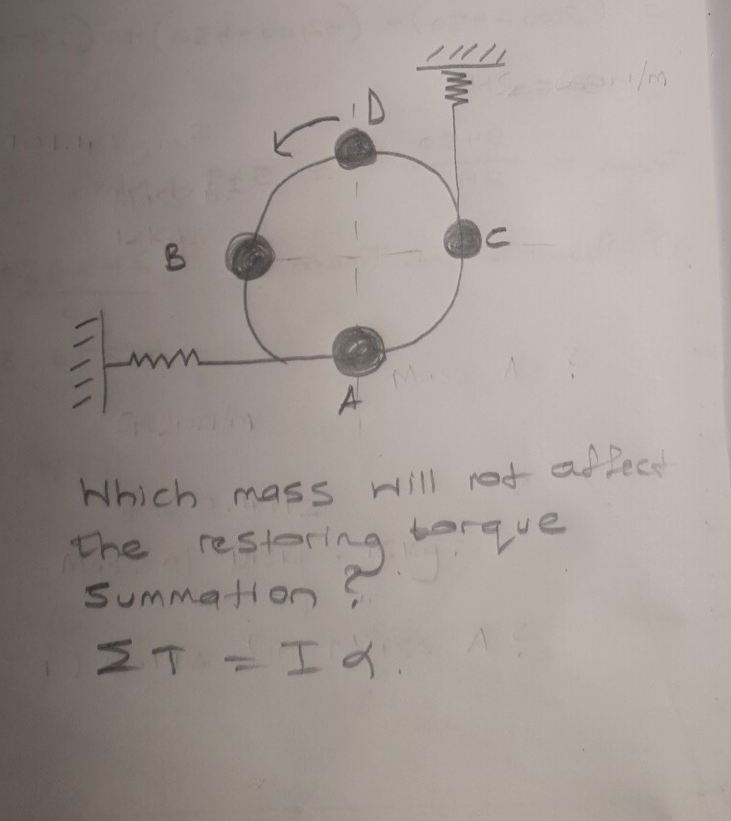 D
C
B
A
Which mass will not affect
the restoring torque
summation?
ΣT = Iα.